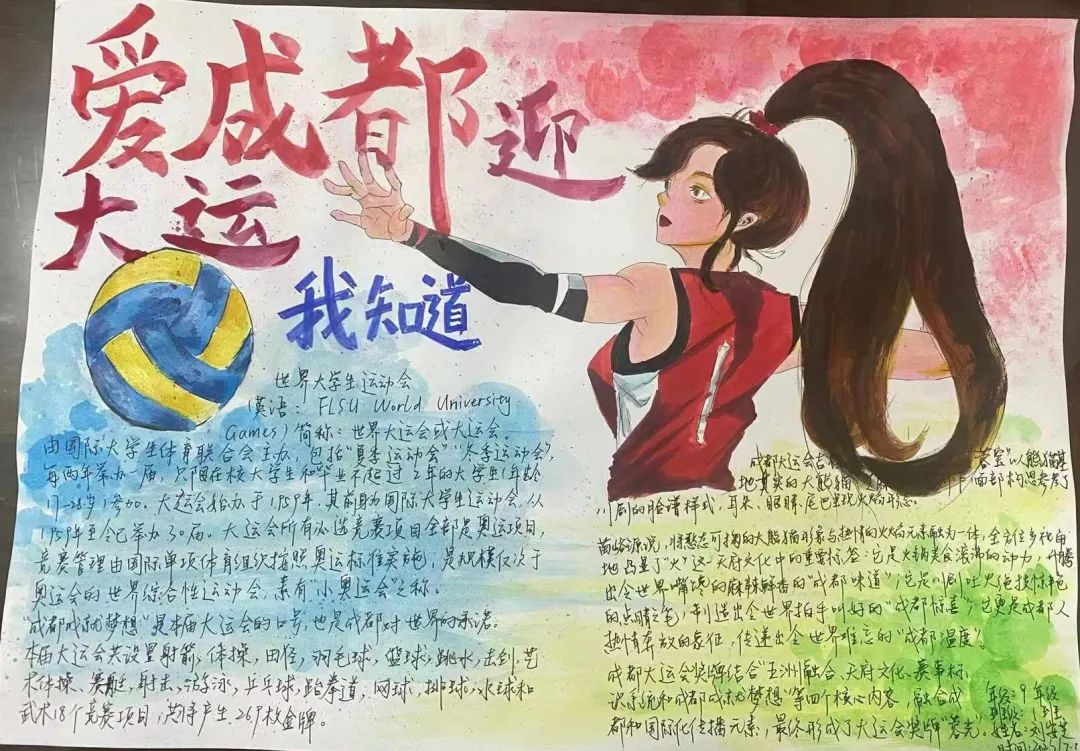 爱成都迎
大运
我知道
世界大学生运动会
(英语: FLSU World University
Games)简称:世界大运会或大运会。
由国际大学生体育联合会主办,包括“夏季运动会”“冬季运动会”,
每两年举办一届,只限在校大学生和毕业不超过2年的大学生(年龄
17-28岁)参加。大运会始办于1959年,其前身为国际大学生运动会,从
1959年至今已举办30届。大运会所有必选竞赛项目全部是奥运项目,
竞赛管理由国际单项体育组织按照奥运标准实施,是规模仅次于
奥运会的世界综合性运动会,素有“小奥运会”之称。
“成都成就梦想”是本届大运会的口号,也是成都对世界的承诺。
本届大运会共设置射箭,体操,田径,羽毛球,篮球,跳水,击剑,艺
术体操、赛艇,射击,游泳,乒乓球,跆拳道,网球,排球,水球和
武术18个竞赛项目,共将产生269枚金牌。
成都大运会吉 蓉宝”以熊猫基
地真实的大熊猫 面部构思参考了
川剧的脸谱样式,耳朵、眼睛、尾巴呈现火焰形态
将憨态可掬的大熊猫形象与热情的火焰元素融为一体,全方位多
地凸显了“火”这一天府文化中的重要标签 它是火锅美食滚沸的动力,
出全世界嘴馋的麻辣鲜香的“成都味道”;它是川剧吐火绝技惊艳
的点睛之笔,制造出全世界拍手叫好的“成都惊喜”;它更是成都人
热情奔放的表征,传递出全世界难忘的“成都温度”。
成都大运会奖牌结合“五洲融合、天府文化、赛事标
识系统和成都成就梦想”等四个核心内容,融合成
都和国际化传播元素,最终形成了大运会奖牌“蓉光。
年级:9年级
班级:1班
姓名:刘
时间: